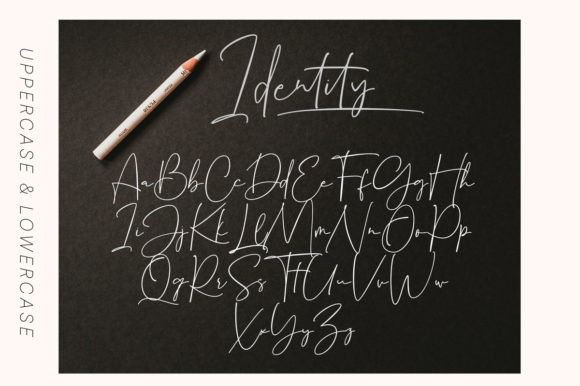 UPPERCASE & LOWERCASE
Identity
AaBbCcDdEeFfGgHh
IiJjKkLlMmNnOoPp
QqRrSsTtUuVvWw
XxYyZz